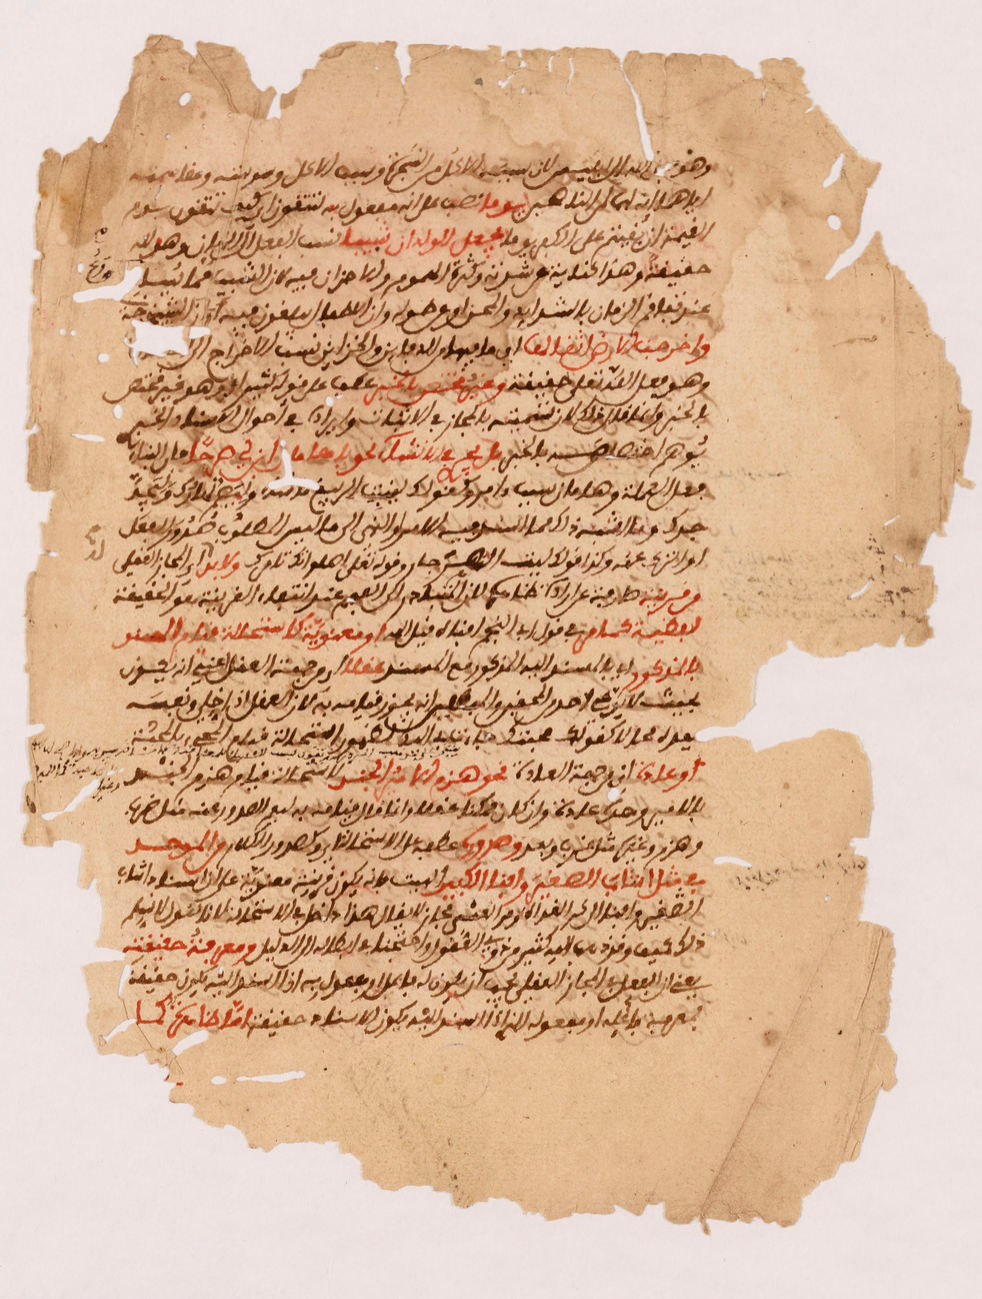 وهو لله الى ابليس لان سبب الاكل من الشجرة وسبب الاكل وسوسته ومقاسمته
اياهما انه لهما لمن الناصحين يوما نصب على انه مفعول به لتتقون اي كيف تتقون يوم
القيمة ان بقيتم على الكفر يوما يجعل الولدان شيبا نسب الفعل الى الزمان وهو لله
حقيقة وهذا كناية عن شدته وكثرة الهموم والاحزان فيه لان الشيب مما يتسارع
عند تفاقم الزمان بالشدايد والمحن او عن طوله وان الاطفال يبلغون فيه اوان الشيخوخة
واخرجت الارض اثقالها اي ما فيها من الدفاين والخزاين نسب الاخراج الى
وهو فعل الله تعلى حقيقة وغير مختص بالخبر عطف على قوله كثير اي وهو غير مختص
بالخبر وانما قال ذلك لان تسميته بالمجاز في الاثبات وايراده في احوال الاسناد الخبري
يوهم اختصاصه بالخبر بل يجري في الانشاء نحو يا هامان ابن لي صرحا فان البناء
فعل العملة وهامان سبب امر وكقولك لينبت الربيع ما شاء وليصم نهارك وليجد
جدك وما اشبه ذلك مما اسند فيه الامر او النهي الى ما ليس المطلوب صدور الفعل
او الترك عنه وكذا قولك ليت النهر جار وقوله تعلى اصلواتك تامرك ولا بد له اي للمجاز العقلي
من قرينة صارفة عن ارادة ظاهره لان المتبادر الى الفهم عند انتفاء القرينة هو الحقيقة
لفظية كما مر في قول ابي النجم افناه قيل الله او معنوية كاستحالة قيام المسند
بالمذكور اي بالمسند اليه المذكور مع المسند عقلا اي من جهة العقل يعني ان يكون
بحيث لا يدعي احد من المحقين والمبطلين انه يجوز قيامه به لان العقل اذا خلي ونفسه
يعده محالا كقولك محبتك جاءت بي اليك لظهور استحالة قيام المجيء بالمحبة
او عادة اي من جهة العادة نحو هزم الامير الجند لاستحالة قيام هزم الجند
بالامير وحده عادة وان كان ممكنا عقلا وانما قال قيامه به ليعم الصدور عنه مثل ضرب
وهزم وغيره مثل قرب وبعد وصدوره عطف على استحالة اي وكصدور الكلام عن الموحد
في مثل اشاب الصغير وافنى الكبير البيت فانه يكون قرينة معنوية على ان اسناد اشاب
الصغير وافنى الى كر الغداة ومر العشي مجاز لا يقال هذا داخل في الاستحالة لانا نقول لا نسلم
ذلك كيف وقد ذهب اليه كثير من ذوي العقول واحتجنا في ابطاله الى الدليل ومعرفة حقيقته
يعني ان الفعل في المجاز العقلي يجب ان يكون له فاعل او مفعول به اذا اسند اليه يكون حقيقة
فمعرفة فاعله او مفعوله الذي اذا اسند اليه يكون الاسناد حقيقة اما ظاهرة كما